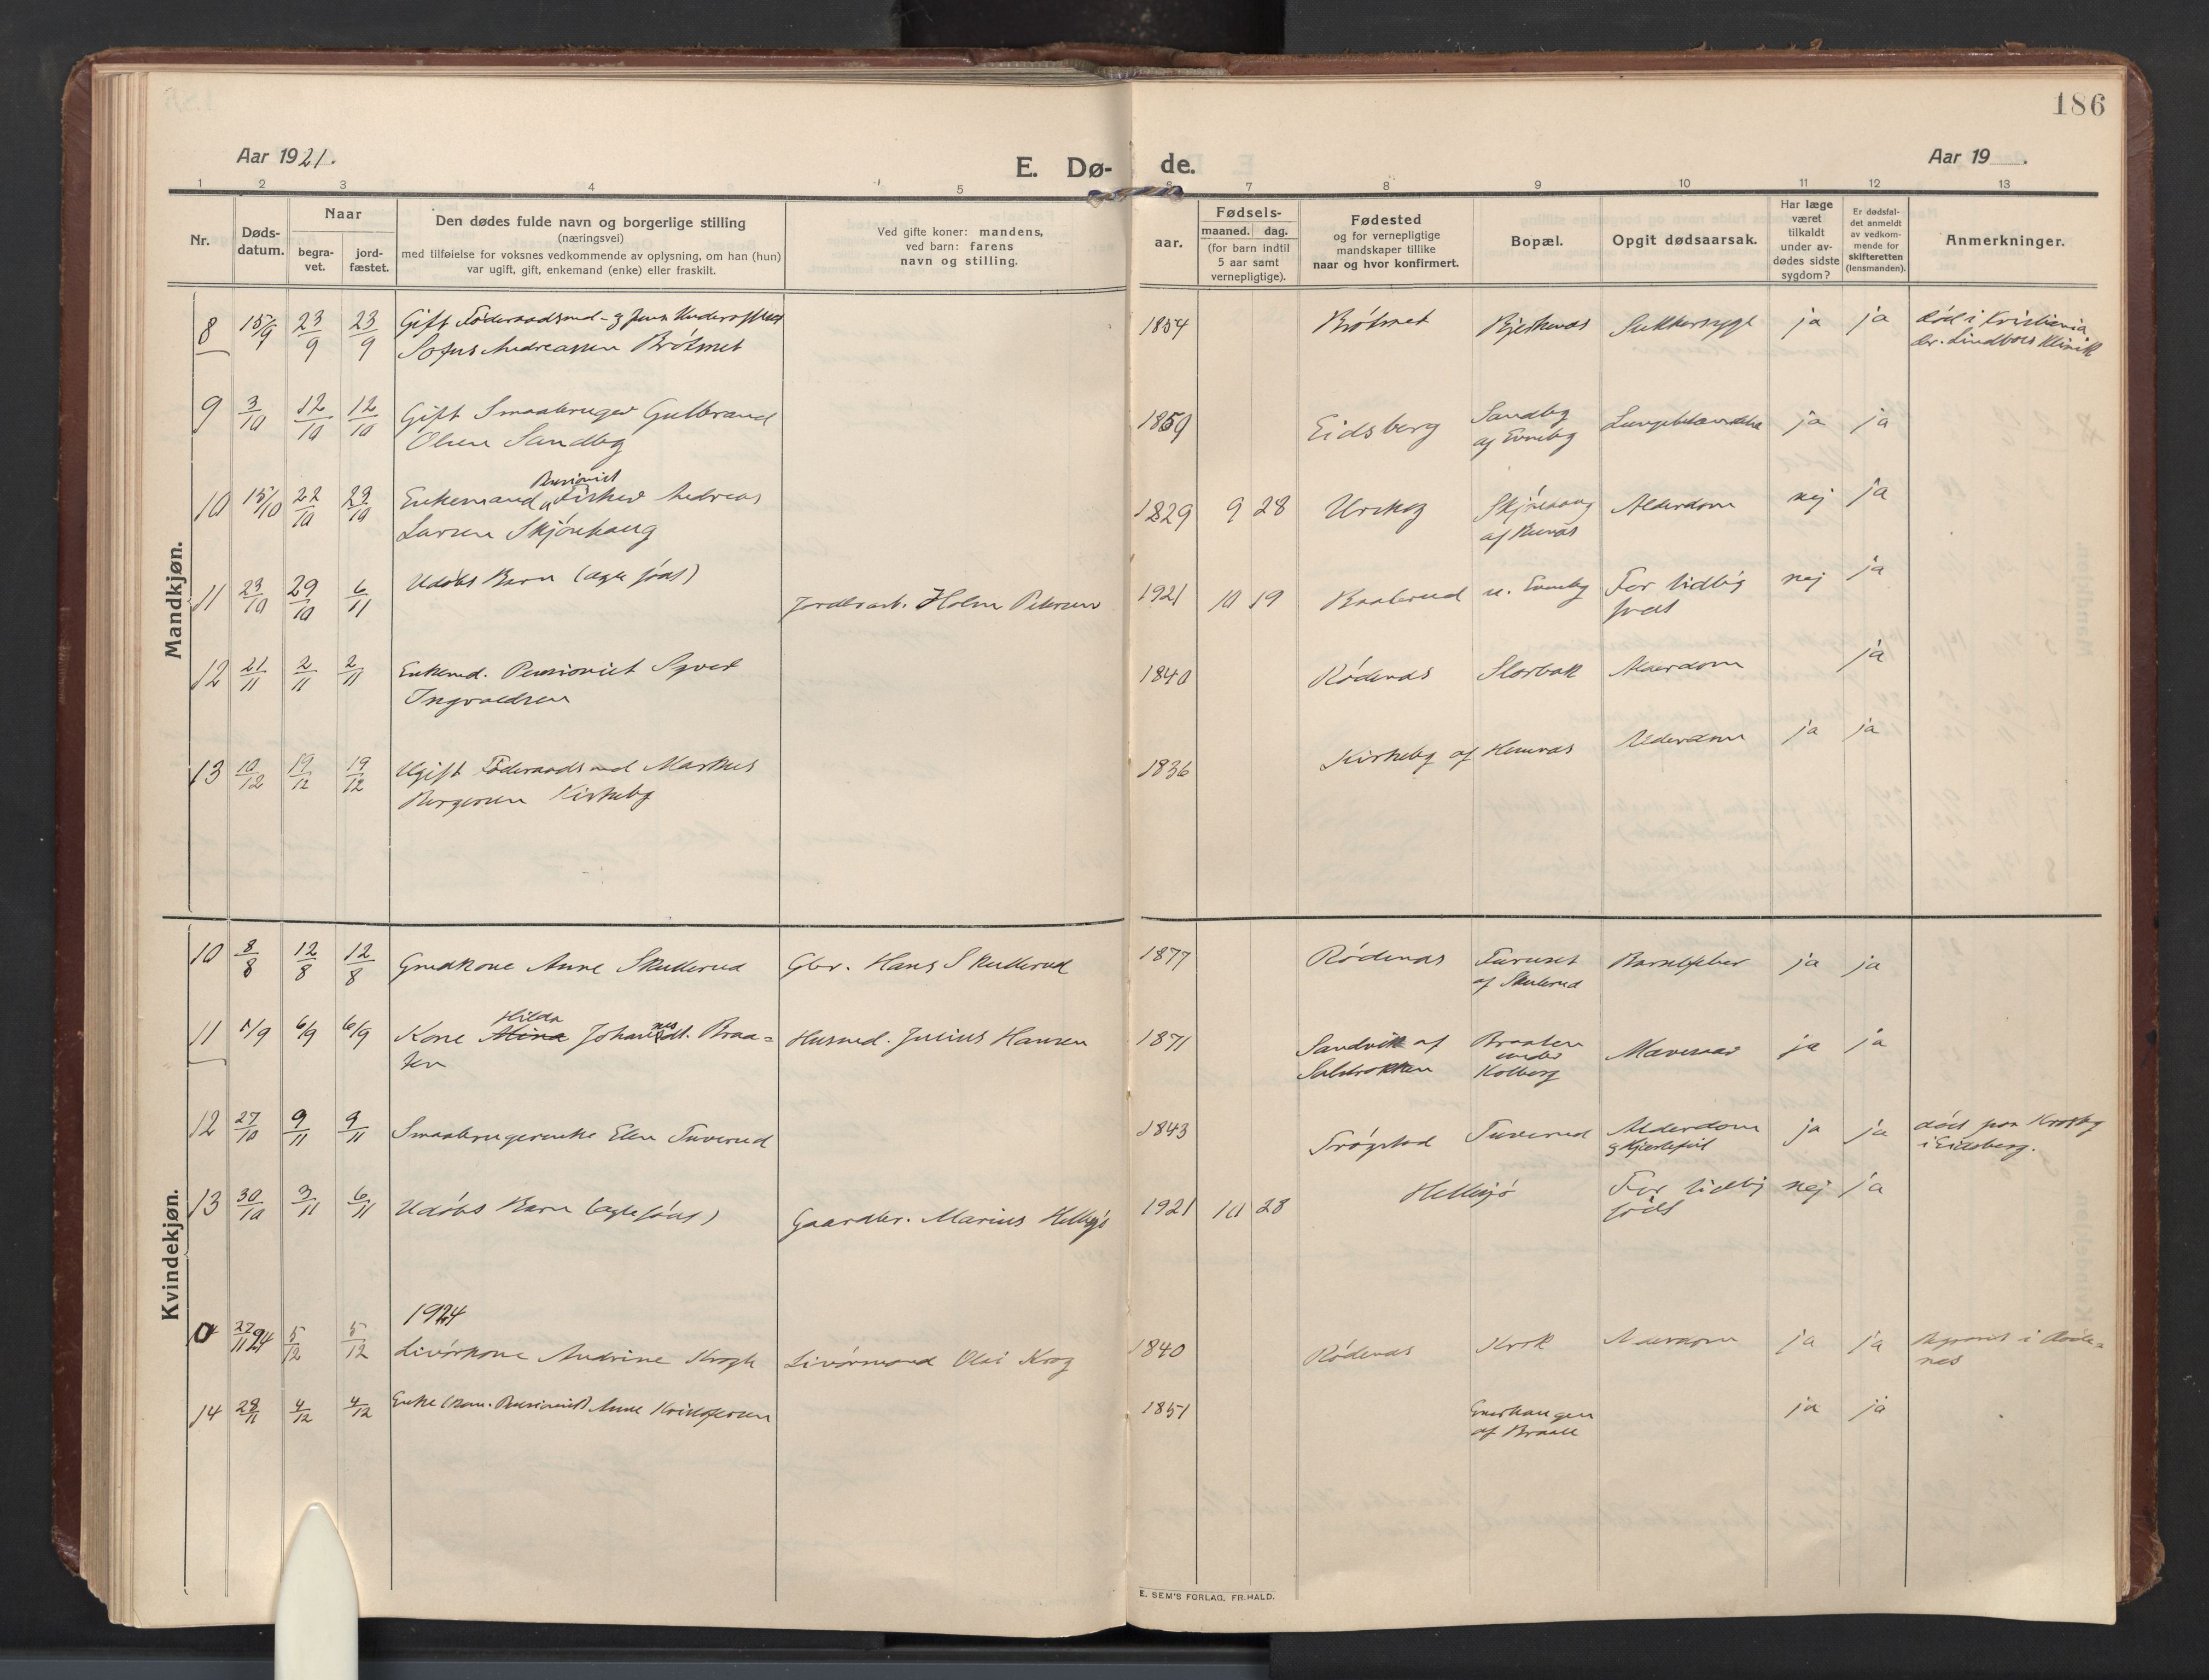 186
Aar 1921.
E. Dø-
de.
Aar 19 .
1 2 3 4 5 6 7 8 9 10 11 12 13
Nr.
Døds-
datum.
Naar
begra-
vet.
jord-
fæstet.
Den dødes fulde navn og borgerlige stilling
(næringsvei)
med tilføielse for voksnes vedkommende av oplysning, om han (hun)
var ugift, gift, enkemand (enke) eller fraskilt.
Ved gifte koner: mandens,
ved barn: farens
navn og stilling.
aar.
Fødsels-
maaned. dag.
(for barn indtil
5 aar samt
vernepligtige).
Fødested
og for vernepligtige
mandskaper tillike
naar og hvor konfirmert.
Bopæl.
Opgit dødsaarsak.
Har læge
været
tilkaldt
under av-
dødes sidste
sygdom?
Er dødsfal-
det anmeldt
av vedkom-
mende for
skifteretten
(lensmanden).
Anmerkninger.
Mandkjøn.
8 15/9 23/9 23/9 Gift Föderaadsmd - g
Sofus Andreassen Brötmet
1854 Brötmet Sukkersyge ja ja död i Kristiania
dr. Lindboes Klinik
9 3/10 12/10 12/10 Gift Smaabruger Gulbrand
Olsen Sandby
1859 Eidsberg Sandby
af Evneby ja ja
10 15/10 22/10 Pensionist
Enkemand Fisker Andreas
Larsen Skjönhaug
1829 9 28 Urskog Skjönhaug
Alderdom nej ja
11 23/10 29/10 6/11 Udöbt Barn (ægte födt)
Jordbrarb. Holm Petersen
1921 10 19 u. Evneby For tidlig
født nej ja
12 21/11 2/11 2/11 Enkemd. Pensionist Syver
Ingvaldsen
1840 Rödenes Storbak Alderdom ja
13 10/12 19/12 19/12 Ugift Föderaadsmd Markus
Borgersen Kirkeby
1836 Kirkeby af Hemnes Alderdom ja ja
Kvindekjøn.
10 8/8 12/8 12/8 Gmdkone Anne Skullerud
Gbr. Hans Skullerud
1877 Rödenes Furuset
af Skullerud
Barselfeber ja ja
11 1/9 6/9 6/9 Kone Hilda Mina Johannesdt. Braa=
ten
Husmd. Julius Hansen
1871 Sandvik af
Braaten
under
Kolberg
Mavesaar ja ja
12 27/10 9/11 9/11 Smaabrugerenke Elen Tuverud
1843 Trögstad Tuverud Alderdom
g Hjertefeil ja ja död paa Krosby
i Eidsberg.
13 30/10 3/11 6/11 Udöbt Barn (ægte födt)
Gaardbr. Marius Hellesjö
1921 10 28 Hellesjö For tidlig
född nej ja
1924
27/11 24 5/12 5/12 Livörkone Andrine Krogh
Livörmand Olai Krog
1840 Rödenes Krok Alderdom ja ja Begravet i Röde=
nes
14 28/11 4/12 4/12 Enke (kom. Pensionist) Anne Kristofersen
1851 Grushaugen
af Braate
ja ja
E. SEM'S FORLAG, FR.HALD.